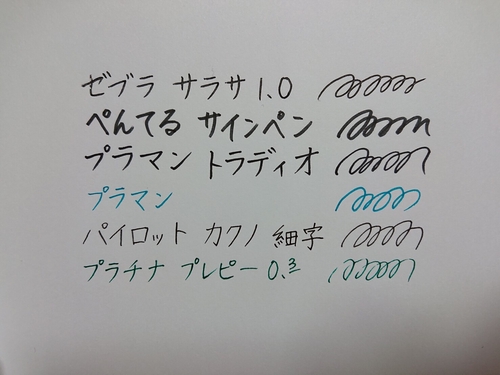 ゼブラ サラサ 1.0
ぺんてる サインペン
プラマン トラディオ
プラマン
パイロット カクノ 細字
プラチナ プレピー 0.3